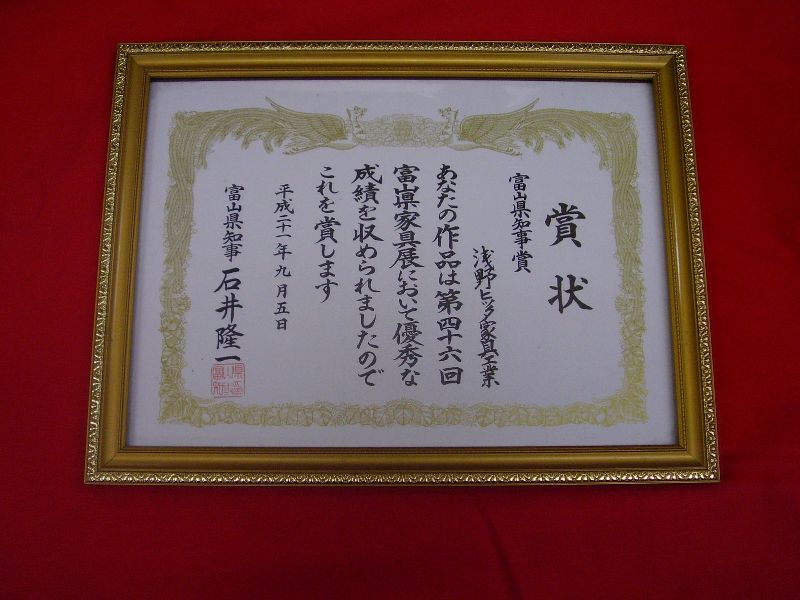 賞状
富山県知事賞
浅野ヒック家具工業
あなたの作品は第四十六回
富山県家具展において優秀な
成績を収められましたので
これを賞します
平成二十一年九月五日
富山県知事 石井隆一